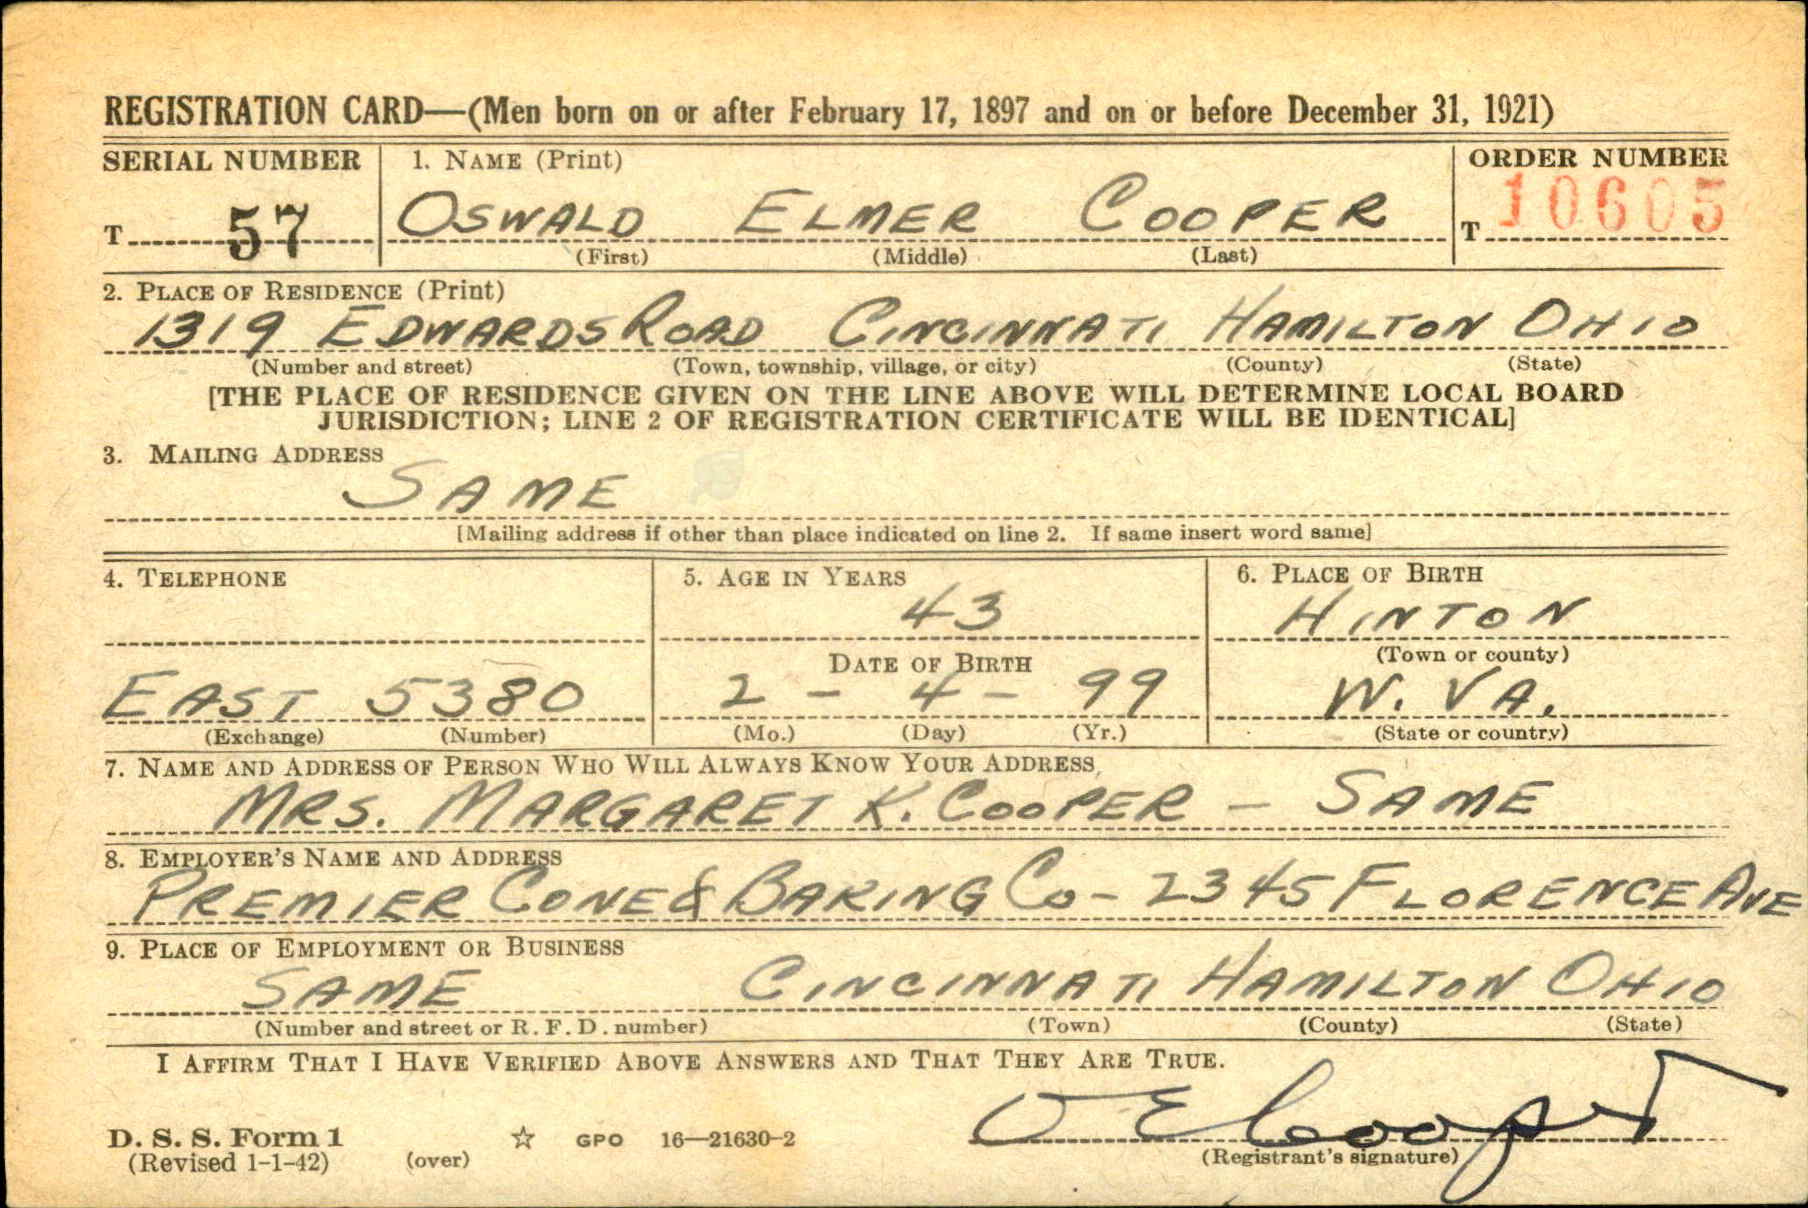 REGISTRATION CARD—(Men born on or after February 17, 1897 and on or before December 31, 1921)
SERIAL NUMBER 1. NAME (Print) ORDER NUMBER
T 57 OSWALD ELMER COOPER T 10605
(First) (Middle) (Last)
2. PLACE OF RESIDENCE (Print)
1319 EDWARDS ROAD CINCINNATI HAMILTON OHIO
(Number and street) (Town, township, village, or city) (County) (State)
[THE PLACE OF RESIDENCE GIVEN ON THE LINE ABOVE WILL DETERMINE LOCAL BOARD
JURISDICTION; LINE 2 OF REGISTRATION CERTIFICATE WILL BE IDENTICAL]
3. MAILING ADDRESS
SAME
[Mailing address if other than place indicated on line 2. If same insert word same]
4. TELEPHONE 5. AGE IN YEARS 6. PLACE OF BIRTH
43 HINTON
DATE OF BIRTH (Town or county)
EAST 5380 2 - 4 - 99 W. VA.
(Exchange) (Number) (Mo.) (Day) (Yr.) (State or country)
7. NAME AND ADDRESS OF PERSON WHO WILL ALWAYS KNOW YOUR ADDRESS
MRS. MARGARET K. COOPER - SAME
8. EMPLOYER'S NAME AND ADDRESS
PREMIER CONE & BAKING CO - 2345 FLORENCE AVE
9. PLACE OF EMPLOYMENT OR BUSINESS
SAME CINCINNATI HAMILTON OHIO
(Number and street or R. F. D. number) (Town) (County) (State)
I AFFIRM THAT I HAVE VERIFIED ABOVE ANSWERS AND THAT THEY ARE TRUE.
O E Cooper
D. S. S. Form 1 ☆ GPO 16—21630-2
(Revised 1-1-42) (over) (Registrant's signature)